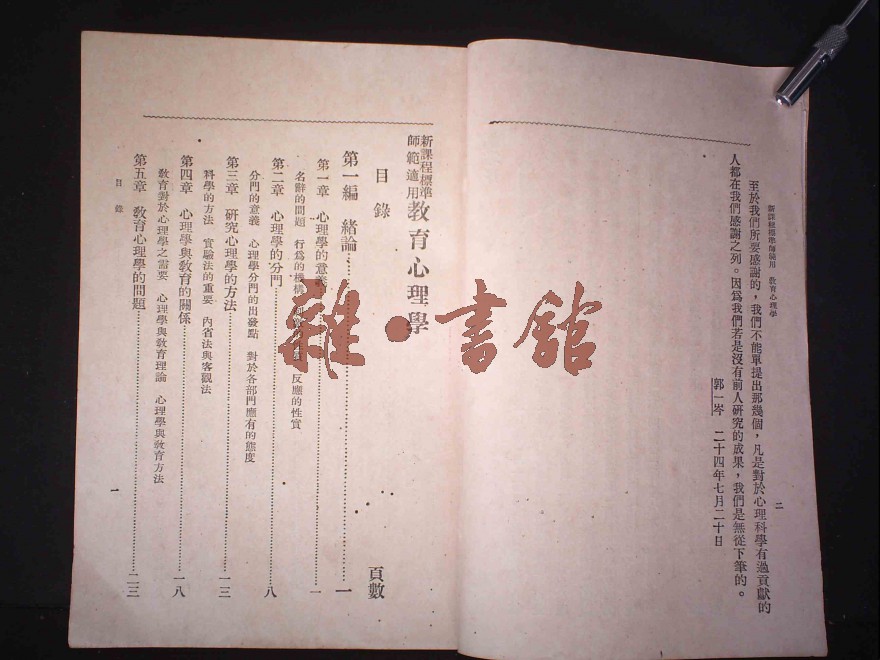 新課程標準師範適用 教育心理學
二
至於我們所要感謝的，我們不能單提出那幾個，凡是對於心理科學有過貢獻的
人都在我們感謝之列。因爲我們若是沒有前人研究的成果，我們是無從下筆的。
郭一岑 二十四年七月二十日
新課程標準
師範適用
教育心理學
目錄
頁數
第一編 緒論……一
第一章 心理學的意義……一
名辭的問題 行爲的機構 反應的性質
第二章 心理學的分門……八
分門的意義 心理學分門的出發點 對於各部門應有的態度
第三章 研究心理學的方法……一三
科學的方法 實驗法的重要 內省法與客觀法
第四章 心理學與教育的關係……一八
教育對於心理學之需要 心理學與教育理論 心理學與教育方法
第五章 教育心理學的問題……二三
目錄
一
雜·書館